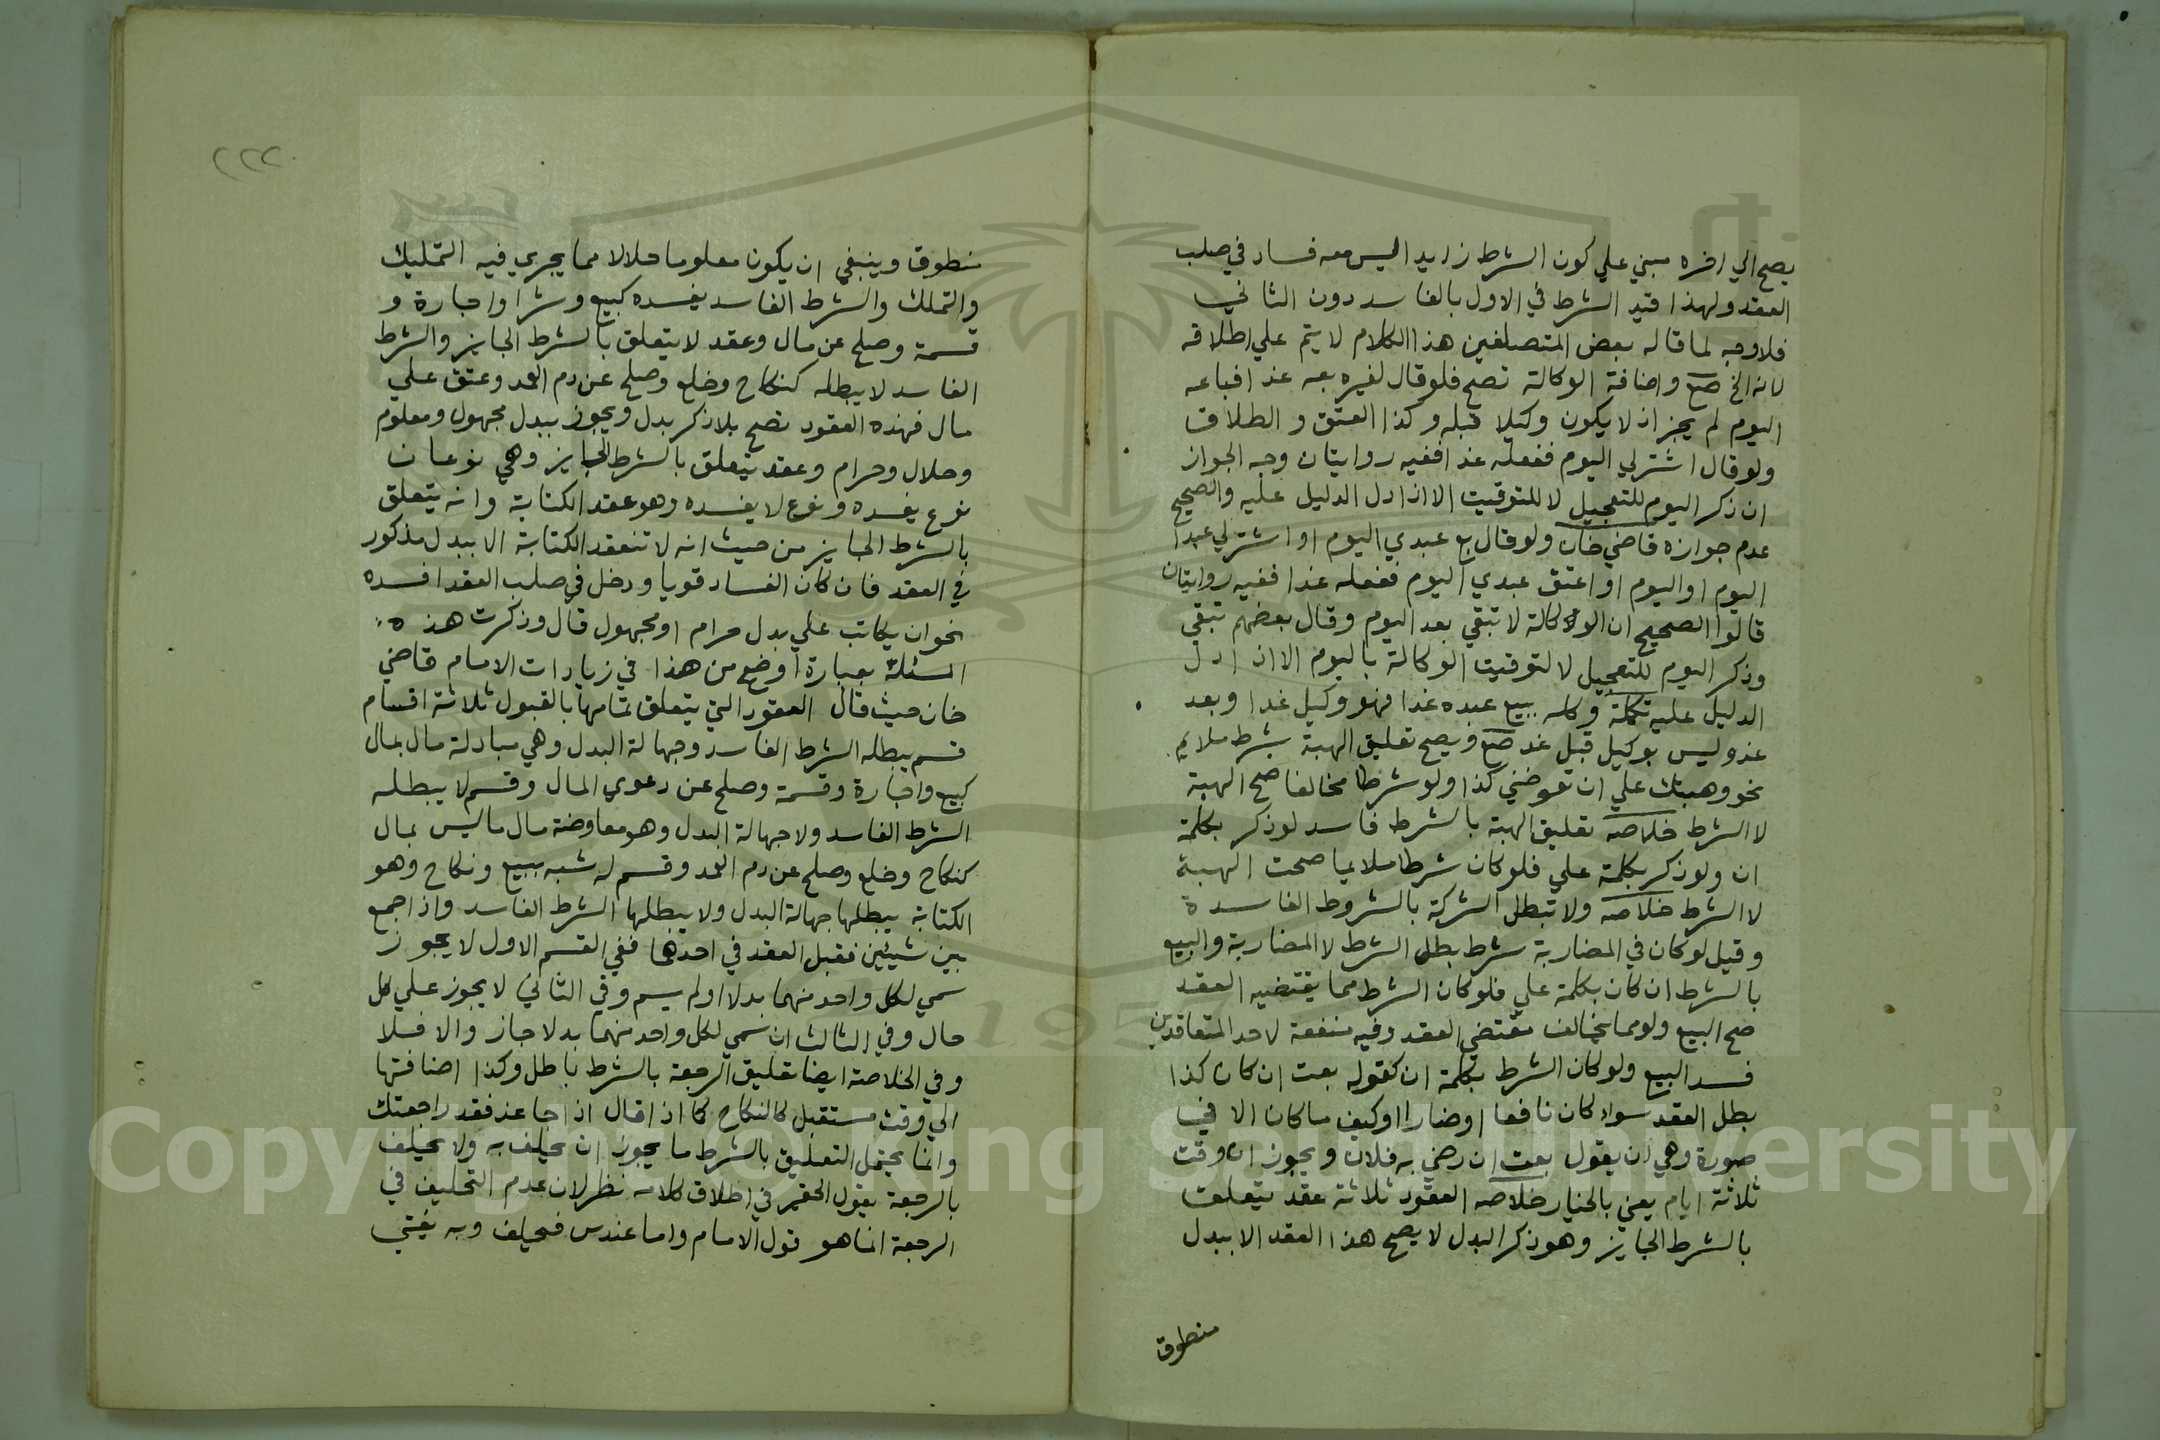 يصح الي اخره مبني علي كون الشرط زايدا ليس معه فساد في صلب
العقد ولهذا قيد الشرط في الاول بالفاسد دون الثاني
فلا وجه لما قاله بعض المتصلفين هذا الكلام لا يتم علي اطلاقه
لانه الخ صع واضافة الوكالة تصح فلو قال لغيره بعه غدا فباعه
اليوم لم يجز اذ لا يكون وكيلا قبله وكذا العتق والطلاق
ولو قال اشتر لي اليوم ففعله غدا ففيه روايتان وجه الجواز
ان ذكر اليوم للتعجيل لا للتوقيت الا اذا دل الدليل عليه والصحيح
عدم جوازه قاضي خان ولو قال بع عبدي اليوم او اشتر لي عبدا
اليوم او اليوم او اعتق عبدي اليوم ففعله غدا ففيه روايتان
قالوا الصحيح ان الوكالة لا تبقي بعد اليوم وقال بعضهم تبقي
وذكر اليوم للتعجيل لا لتوقيت الوكالة باليوم الا ان دل
الدليل عليه تكملة وكله ببيع عبده غدا فهو وكيل غدا وبعد
غد وليس بوكيل قبل غد صع ويصح تعليق الهبة بشرط ملايم
نحو وهبتك علي ان تعوضني كذا ولو شرطا مخالفا صح الهبة
لا الشرط خلاصه تعليق الهبة بالشرط فاسد لو ذكر بكلمة
ان ولو ذكر بكلمة علي فلو كان شرطا ملايما صحت الهبة
لا الشرط خلاصه ولا تبطل الشركة بالشروط الفاسدة
وقيل لو كان في المضاربة شرط بطل الشرط لا المضاربة والبيع
بالشرط ان كان بكلمة علي فلو كان الشرط مما يقتضيه العقد
صح البيع ولو مما يخالف مقتضي العقد وفيه منفعة لاحد المتعاقدين
فسد البيع ولو كان الشرط بكلمة ان كقوله بعت ان كان كذا
بطل العقد سواء كان نافعا او ضارا او كيف ما كان الا في
صورة وهي ان يقول بعت ان رضي به فلان ويجوز ان وقت
ثلاثة ايام يعني بالخيار خلاصه العقود ثلاثة عقد يتعلق
بالشرط الجايز وهو ذكر البدل لا يصح هذا العقد الا ببدل
منطوق
٢٢٤
منطوق وينبغي ان يكون معلوما حلالا مما يجري فيه التمليك
والتملك والشرط الفاسد يفسده كبيع وشرا واجارة و
قسمة وصلح عن مال وعقد لا يتعلق بالشرط الجايز والشرط
الفاسد لا يبطله كنكاح وخلع وصلح عن دم العمد وعتق علي
مال فهذه العقود تصح بلا ذكر بدل ويجوز ببدل مجهول ومعلوم
وحلال وحرام وعقد يتعلق بالشرط الجايز وهي نوعان
نوع يفسده ونوع لا يفسده وهو عقد الكتابة وانه يتعلق
بالشرط الجايز من حيث انه لا تنعقد الكتابة الا ببدل مذكور
في العقد فان كان الفساد قويا ودخل في صلب العقد افسده
نحو ان يكاتب علي بدل حرام او مجهول قال وذكرت هذه
المسئلة بعبارة اوضح من هذا في زيادات الامام قاضي
خان حيث قال العقود التي يتعلق تمامها بالقبول ثلاثة اقسام
قسم يبطله الشرط الفاسد وجهالة البدل وهي مبادلة مال بمال
كبيع واجارة وقسمة وصلح عن دعوي المال وقسم لا يبطله
الشرط الفاسد ولا جهالة البدل وهو معاوضة مال ما ليس بمال
كنكاح وخلع وصلح عن دم العمد وقسم له شبه ببيع ونكاح وهو
الكتابة يبطلها جهالة البدل ولا يبطلها الشرط الفاسد واذا جمع
بين شيئين فقبل العقد في احدهما ففي القسم الاول لا يجوز
سمي لكل واحد منهما بدلا او لم يسم وفي الثاني لا يجوز علي كل
حال وفي الثالث ان سمي لكل واحد منهما بدلا جاز والا فلا
وفي الخلاصة ايضا تعليق الرجعة بالشرط باطل وكذا اضافتها
الي وقت مستقبل كالنكاح كما اذا قال اذا جا غد فقد راجعتك
وانما يحتمل التعليق بالشرط ما يجوز ان يحلف به ولا يحلف
بالرجعة يقول الحقير في اطلاق كلامه نظر لان عدم التحليف في
الرجعة انما هو قول الامام واما عندس فيحلف وبه يفتي
Copyright © King Saud University